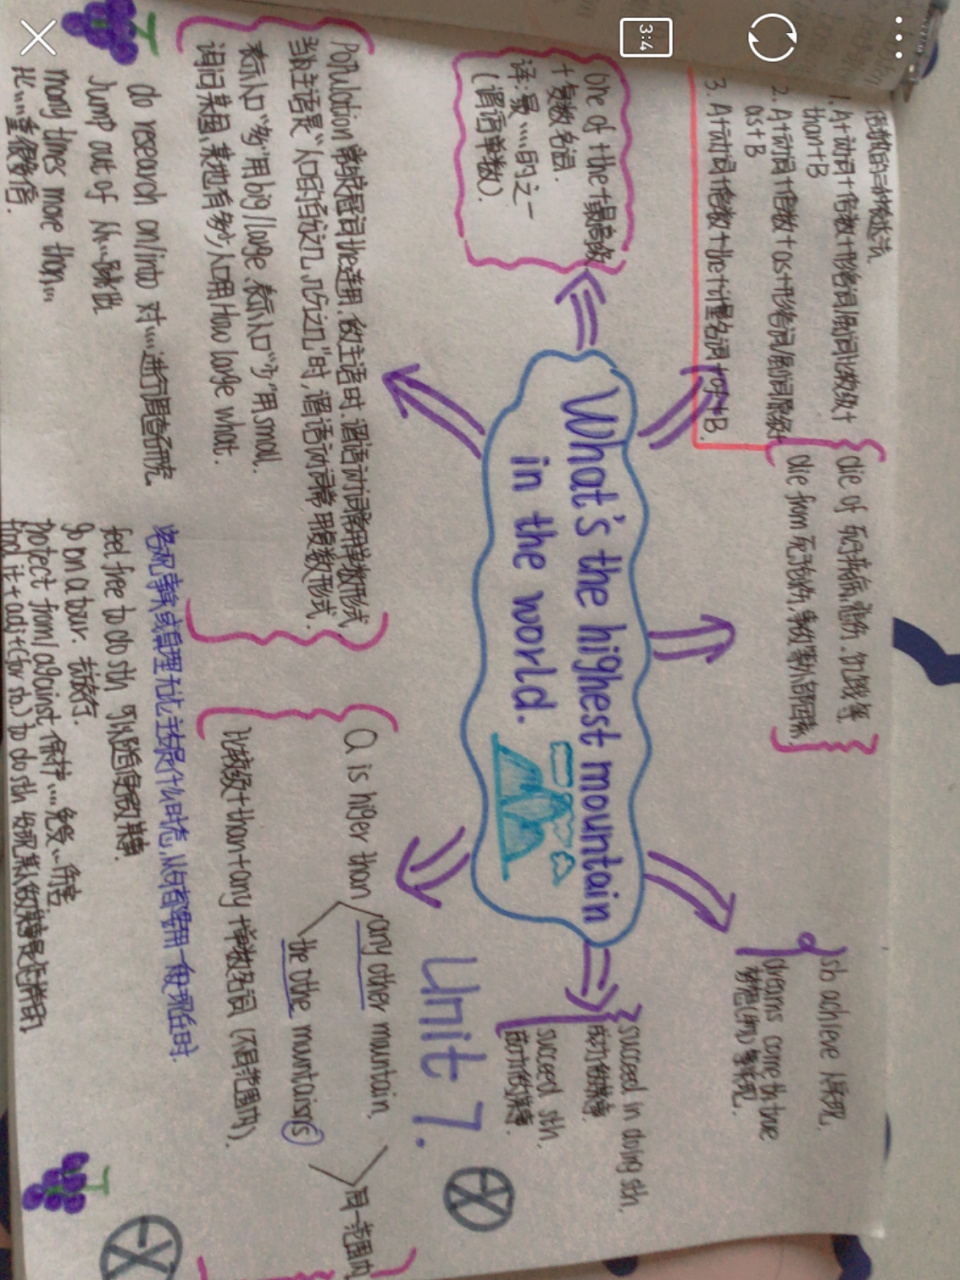 3:4
倍数的三种表达式
1. A+动词+倍数+形容词/副词比较级+
than+B
2. A+动词+倍数+as+形容词/副词原级+
as+B
3. A+动词+倍数+the+计量名词+of+B.
die of 死于疾病, 悲伤, 饥饿等
die from 死于外伤, 事故等外部因素
sb achieve
dreams come th true
one of the+最高级
+复数名词.
译:最……的之一
(谓语单数)
What's the highest mountain
in the world.
succeed in doing sth.
成功的做某事
succeed sth.
Unit 7.
EX
Population 常与定冠词the连用, 做主语时, 谓语动词常用单数形式
当主语是"人口的百分之几, 几分之几"时, 谓语动词常用复数形式.
表示人口"多"用big/large, 表示人口"少"用small.
询问某国, 某地有多少人口用How large what.
a is higer than any other mountain.
the othe muntaisns
同一范围内
比较级+than+any+单数名词 (不同范围内).
do research on/into 对……进行调查研究
Jump out of 从……跳出
many times more than...
客观事实或真理无论主句是什么时态, 从句都要用一般现在时.
feel free to do sth 可以随便做某事.
go on a tour. 去旅行.
protect from/against 保护……免受…伤害
find it+adj+(for sb.) to do sth 发现某人做某事是怎样的
EX